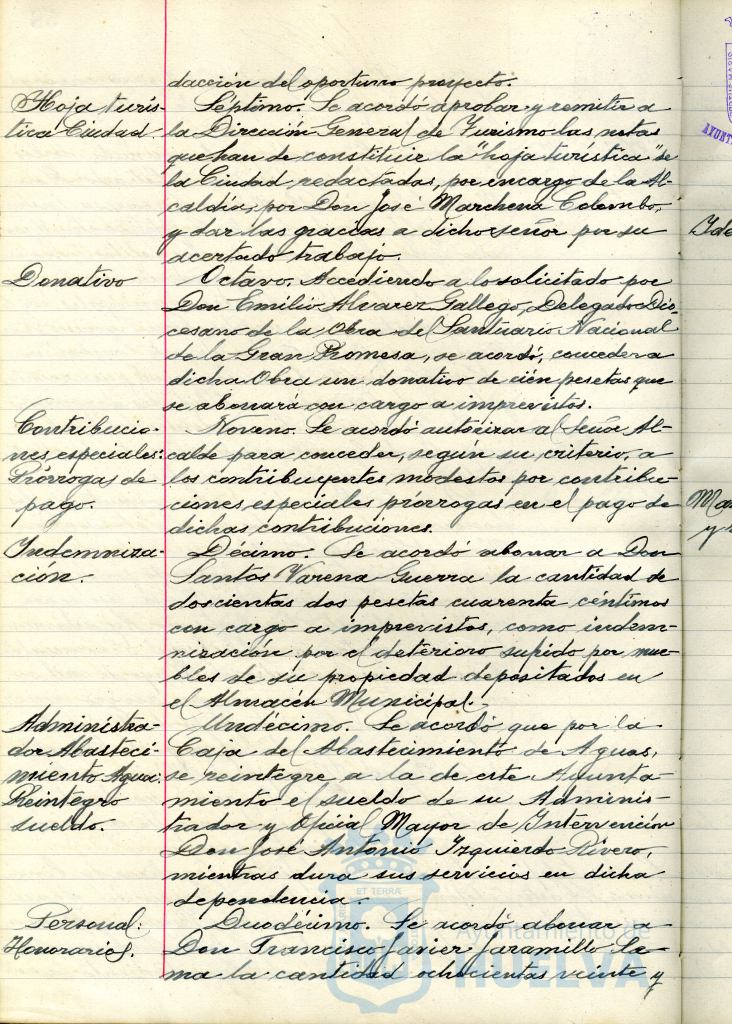 dacción del oportuno proyecto.
Hoja turís-
tica Ciudad.
Séptimo. Se acordó aprobar y remitir a
la Dirección General de Turismo las notas
que han de constituir la "hoja turística" de
la Ciudad, redactadas, por encargo de la Al-
caldía, por Don José Marchena Colombo,
y dar las gracias a dicho señor por su
acertado trabajo.
Donativo
Octavo. Accediendo a lo solicitado por
Don Emilio Alvarez Gallego, Delegado Dio-
cesano de la Obra del Santuario Nacional
de la Gran Promesa, se acordó, conceder a
dicha Obra un donativo de cién pesetas que
se abonará con cargo a imprevistos.
Contribucio-
nes especiales:
Prórrogas de
pago.
Noveno. Se acordó autorizar al Señor Al-
calde para conceder, segun su criterio, a
los contribuyentes modestos por contribu-
ciones especiales prórrogas en el pago de
dichas contribuciones.
Indemniza-
ción.
Décimo. Se acordó abonar a Don
Santos Varena Guerra la cantidad de
doscientas dos pesetas cuarenta céntimos
con cargo a imprevistos, como indem-
nización por el deterioro sufrido por mue-
bles de su propiedad depositados en
el Almacén Municipal.-
Administra-
dor Abasteci-
miento Agua:
Reintegro
sueldo.
Undécimo. Se acordó que por la
Caja del Abastecimiento de Aguas,
se reintegre a la de este Ayunta-
miento el sueldo de su Adminis-
trador y Oficial Mayor de Intervención
Don José Antonio Izquierdo Rivero,
mientras dura sus servicios en dicha
dependencia.
Personal:
Honorarios.
Duodécimo. Se acordó abonar a
Don Francisco Javier Jaramillo La-
ma la cantidad ochocientas veinte y
ET TERRÆ
Ayuntamiento de
HUELVA